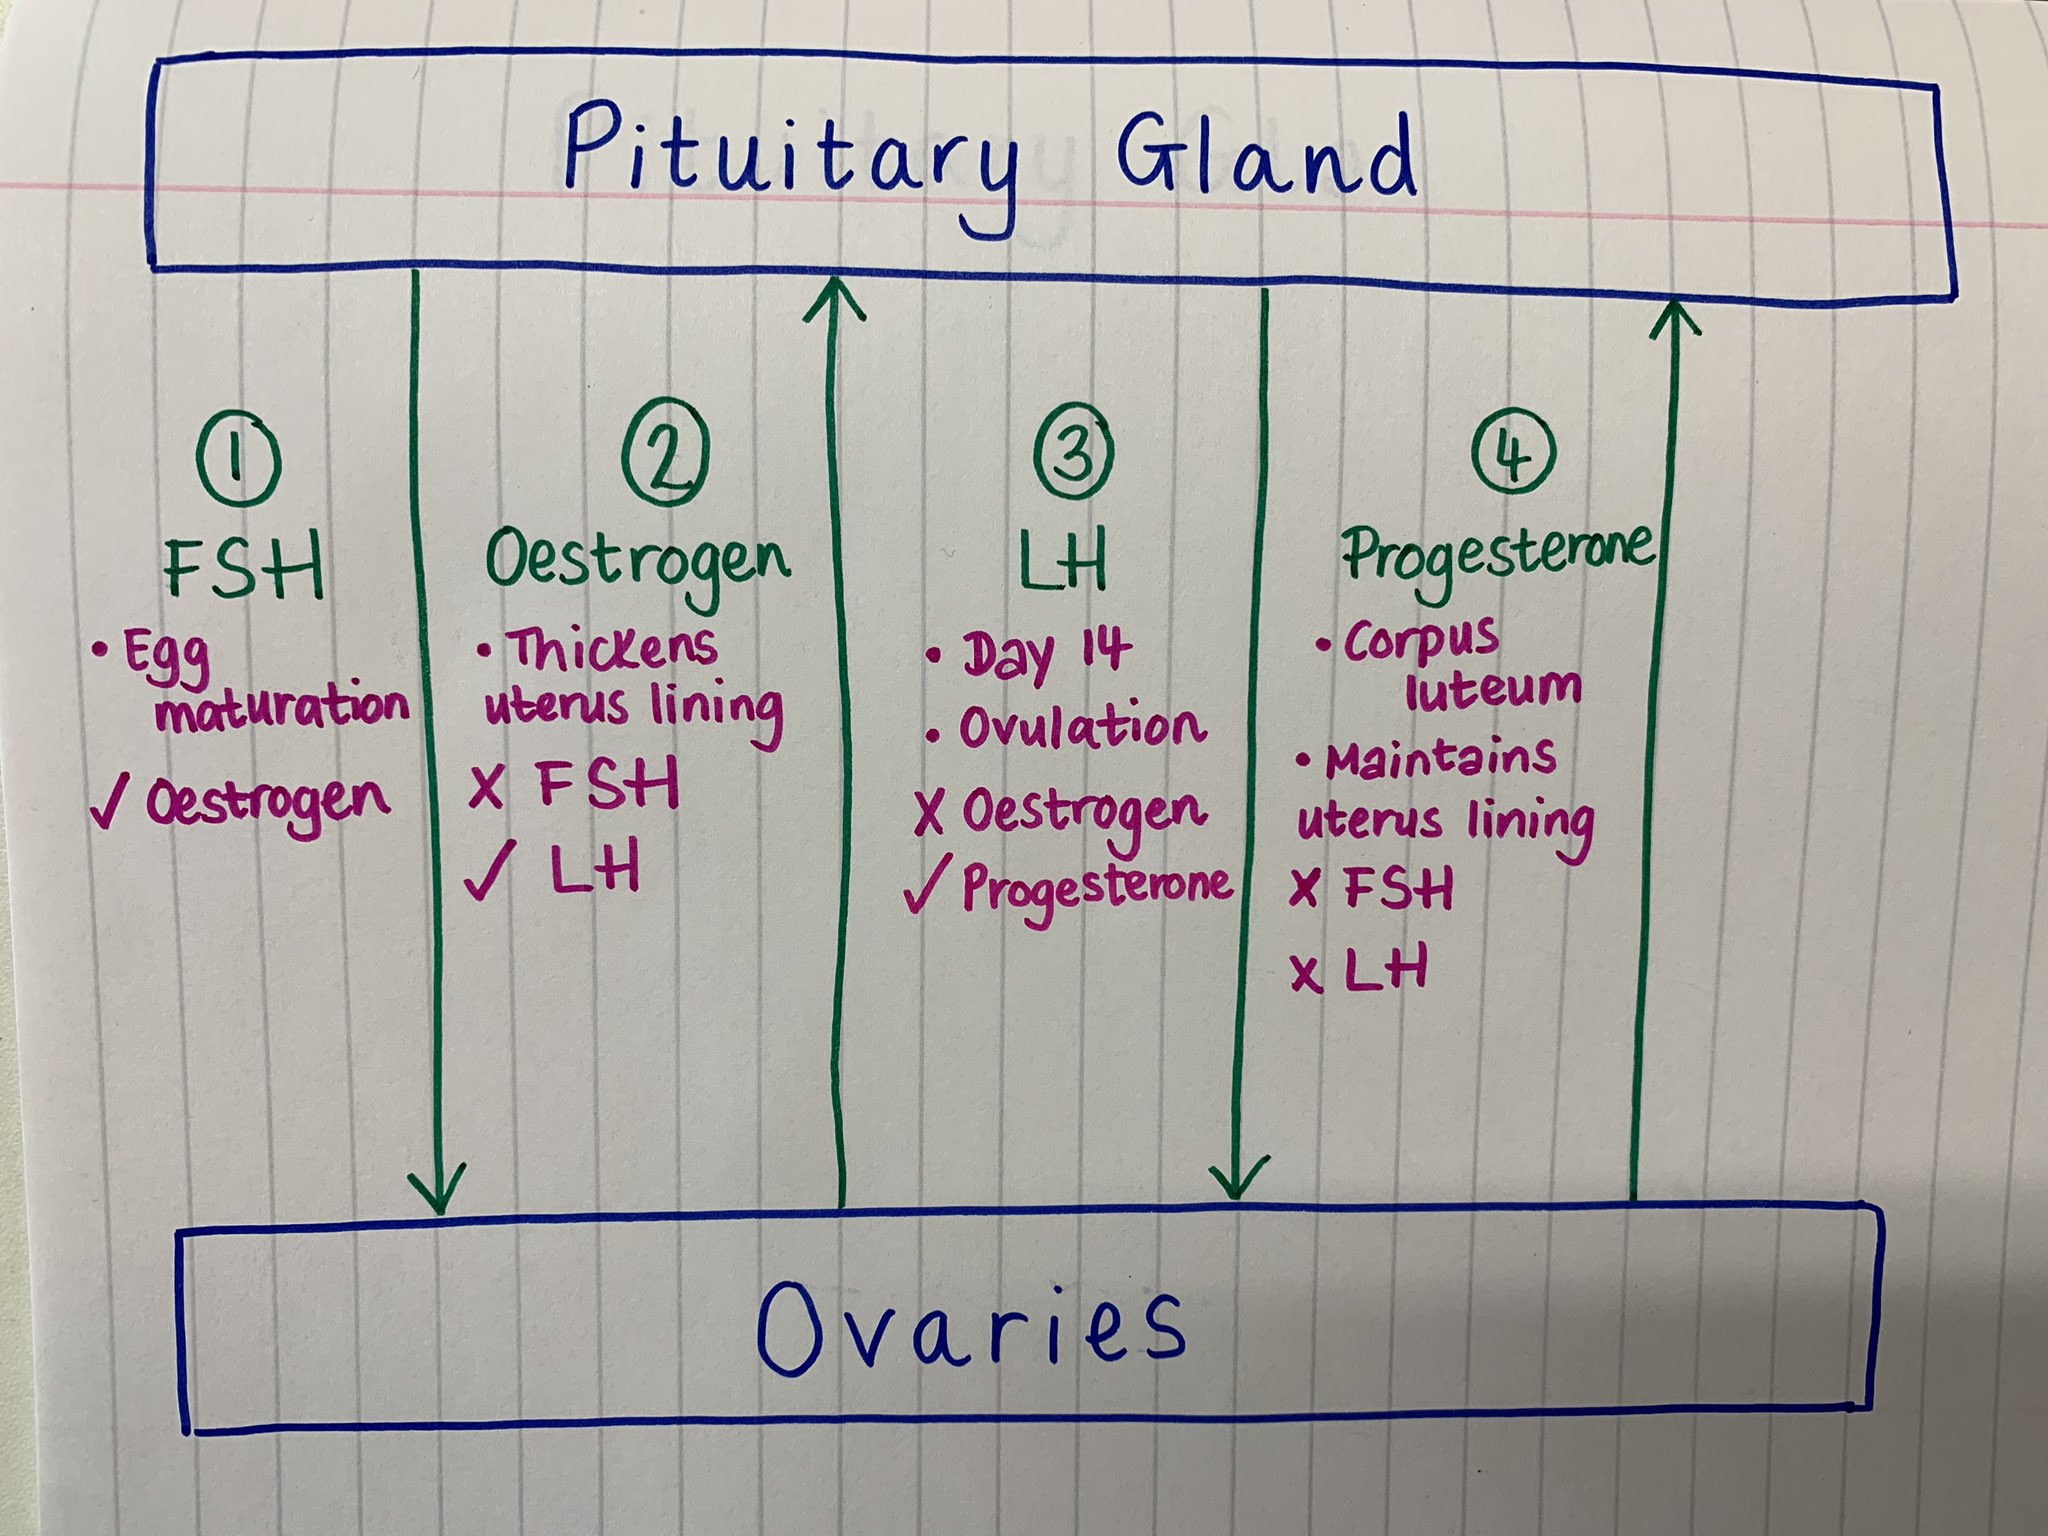 Pituitary Gland
①
FSH
• Egg
maturation
✓ Oestrogen
②
Oestrogen
• Thickens
uterus lining
X FSH
✓ LH
③
LH
• Day 14
• Ovulation
X Oestrogen
✓ Progesterone
④
Progesterone
• Corpus
luteum
• Maintains
uterus lining
X FSH
X LH
Ovaries